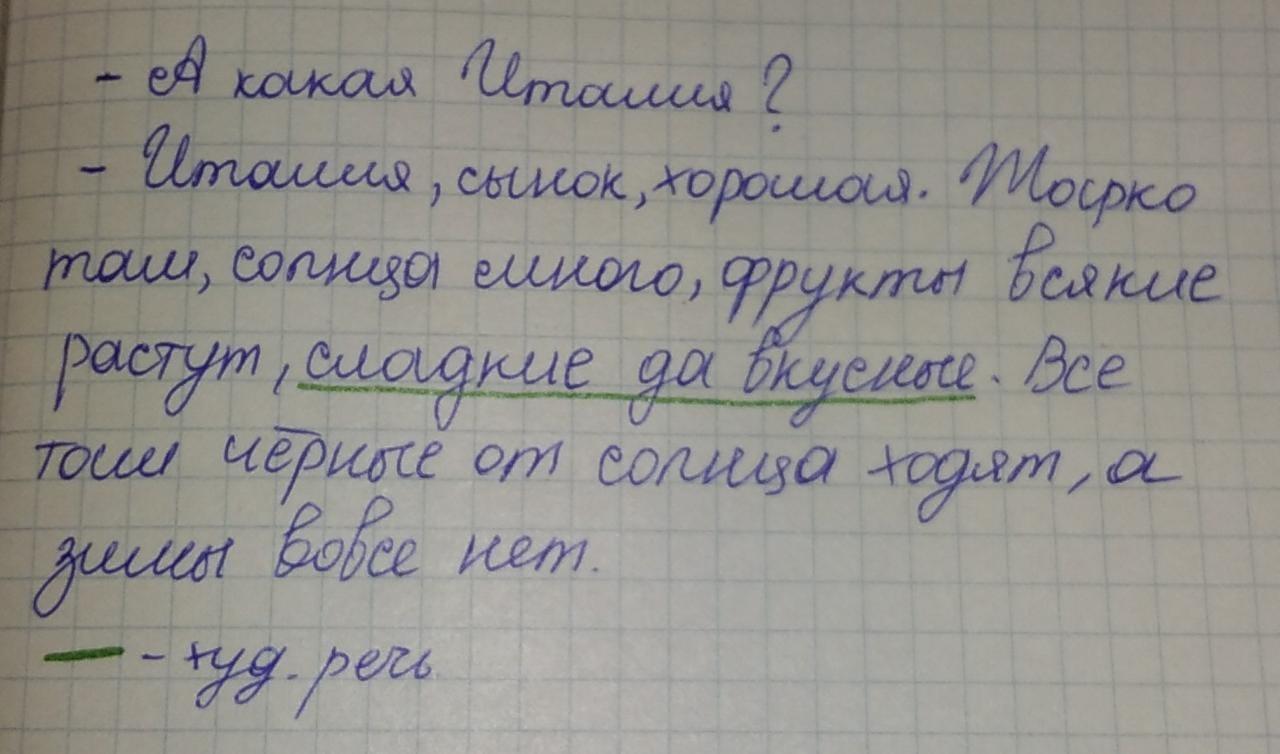 - А какая Италия?
- Италия, сынок, хорошая. Жарко
там, солнца много, фрукты всякие
растут, сладкие да вкусные. Все
там чёрные от солнца ходят, а
зимы вовсе нет.
— - худ. речь